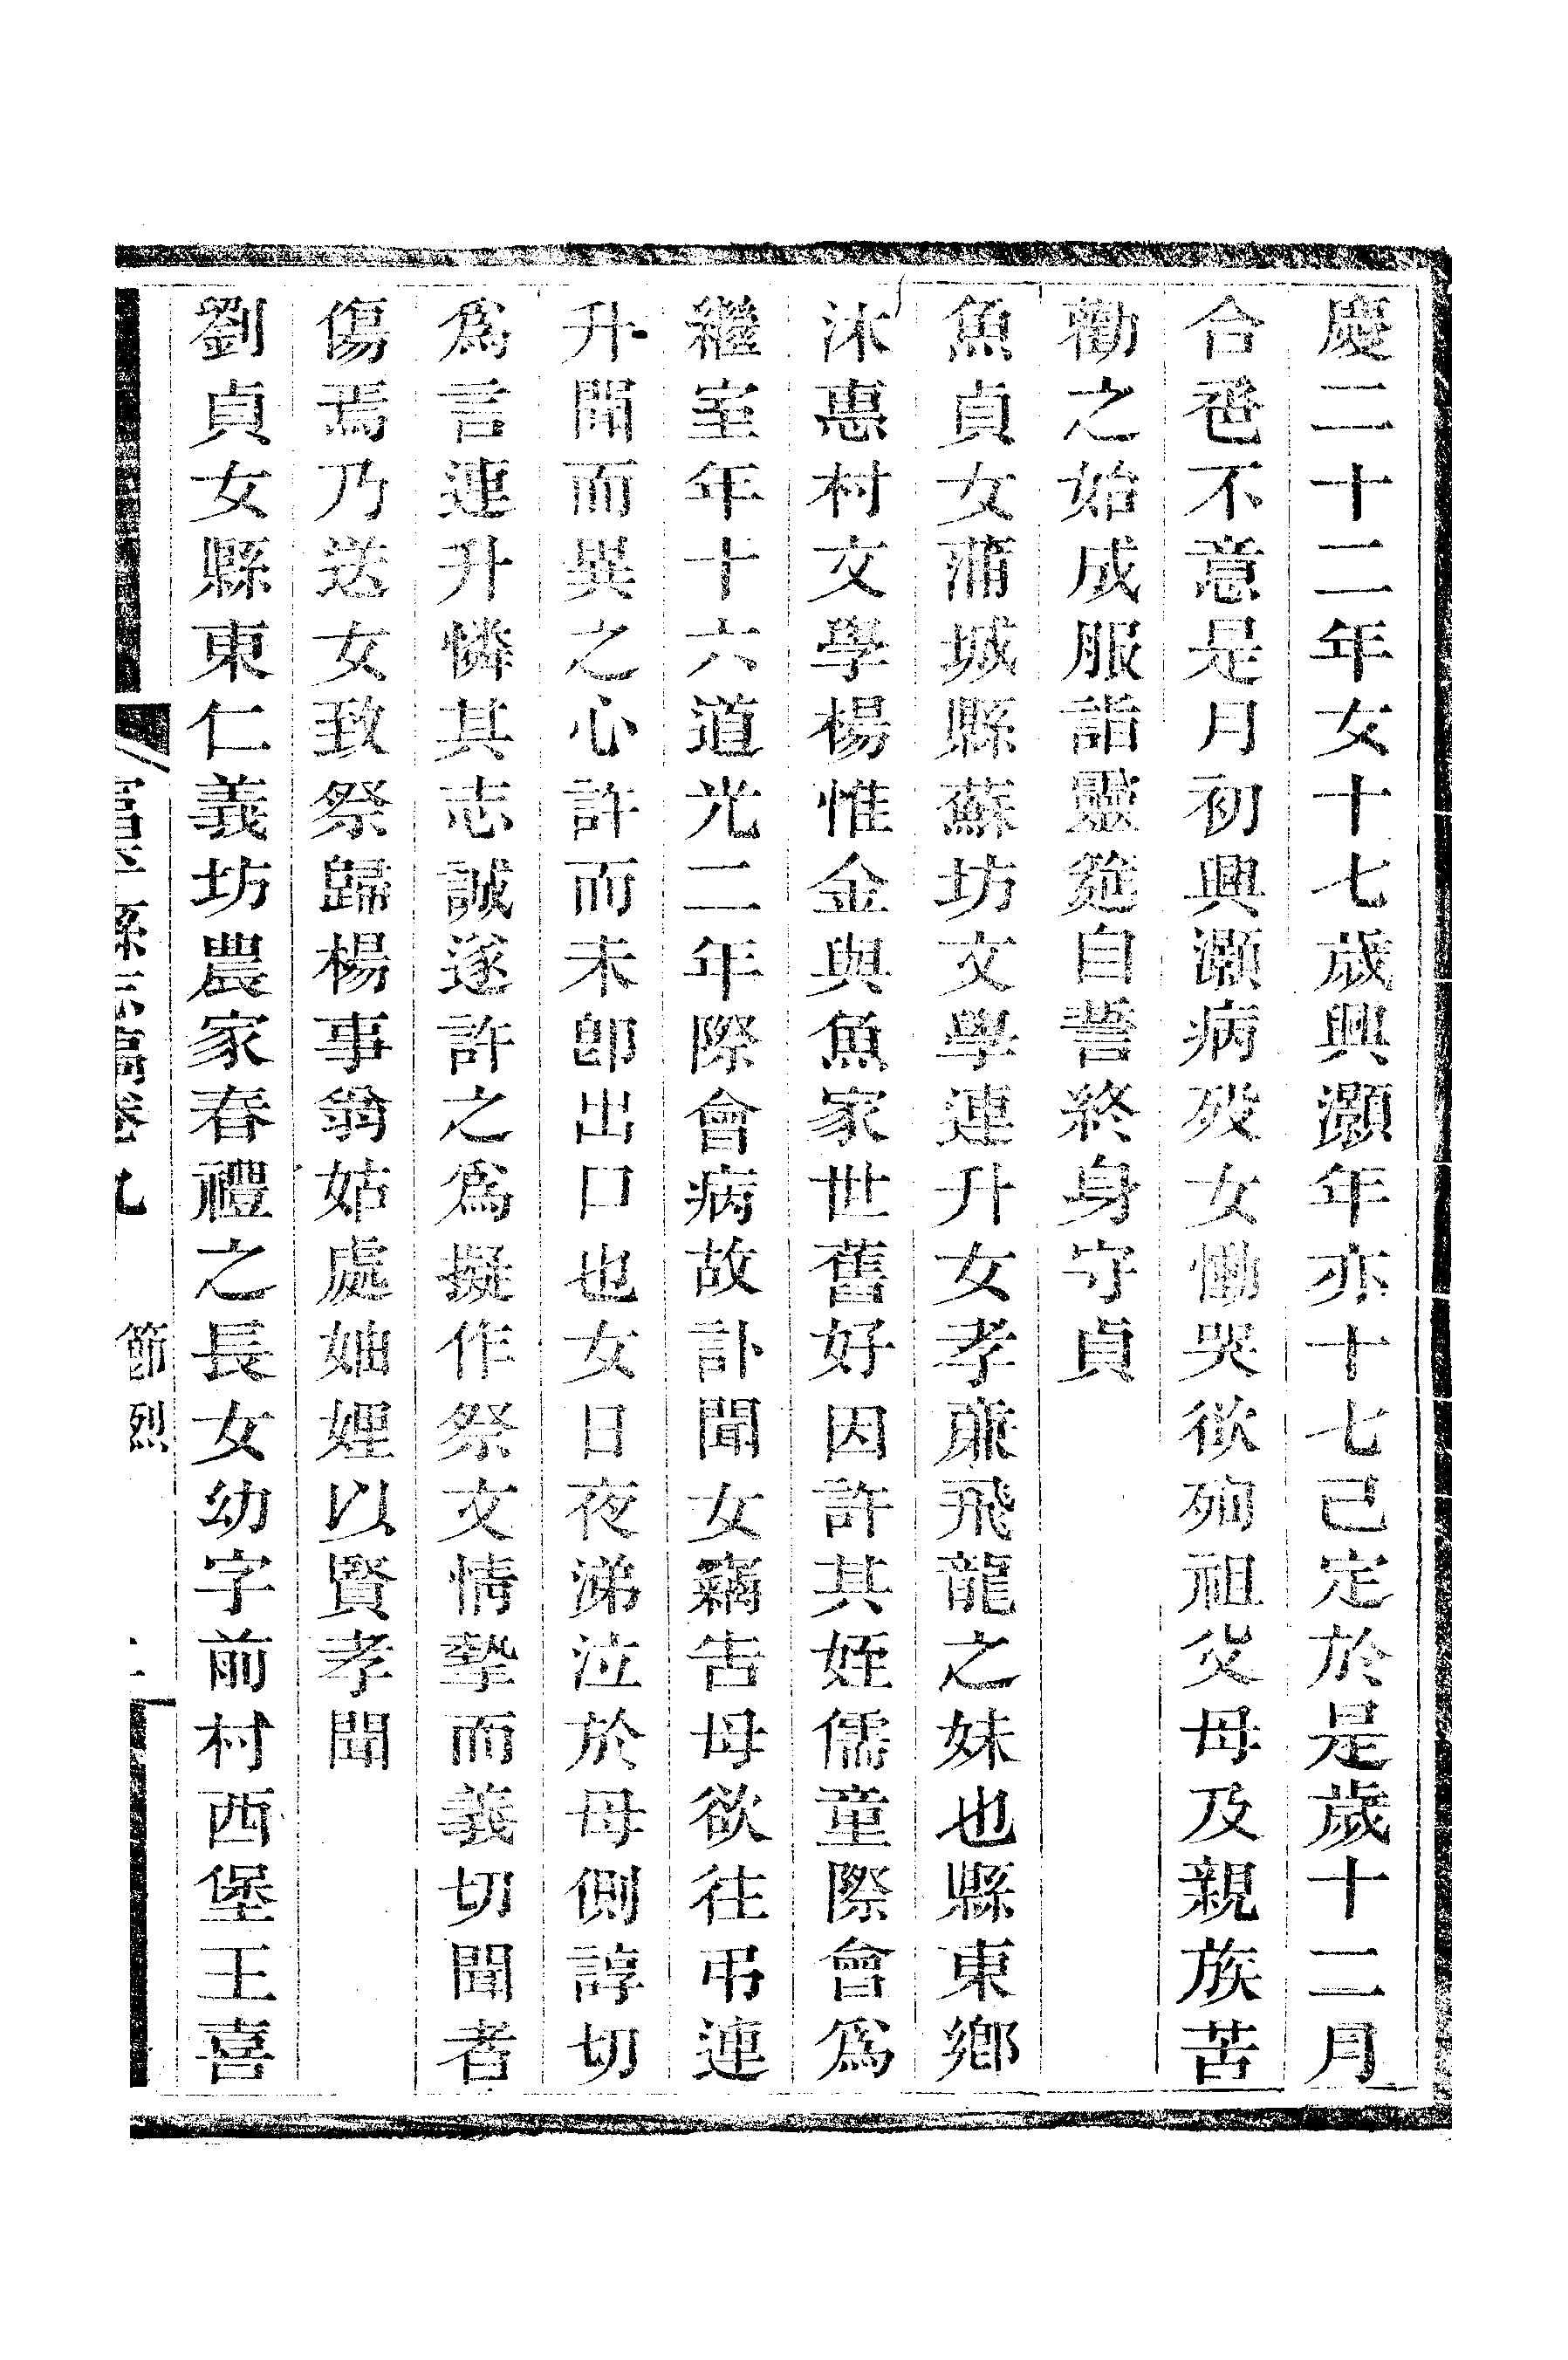 慶二十二年女十七歲興灝年亦十七己定於是歲十二月
合巹不意是月初興灝病歿女慟哭欲殉祖父母及親族苦
勸之始成服詣靈筵自誓終身守貞
魚貞女蒲城縣蘇坊文學連升女孝亷飛龍之妹也縣東鄉
沐惠村文學楊惟金與魚家世舊好因許其姪儒童際會爲
繼室年十六道光二年際會病故訃聞女竊告母欲往弔連
升聞而異之心許而未卽出口也女日夜涕泣於母側諄切
爲言連升憐其志誠遂許之爲擬作祭文情摯而義切聞者
傷焉乃送女致祭歸楊事翁姑處妯娌以賢孝聞
劉貞女縣東仁義坊農家春禮之長女幼字前村西堡王喜
縣志稿卷九 節烈